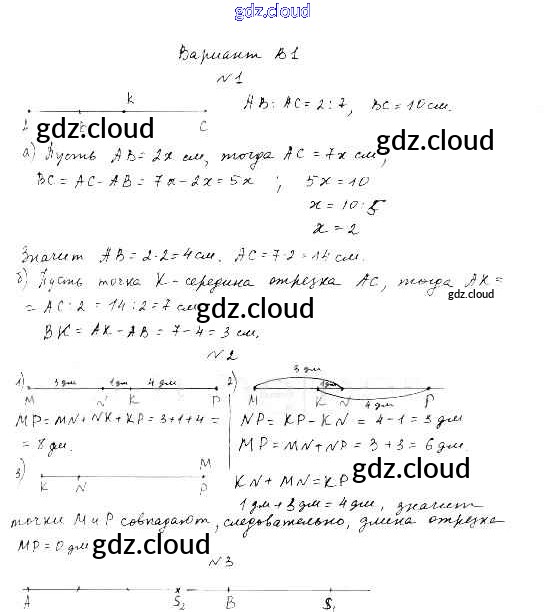 gdz.cloud
Вариант В1
№1
K
A B C
AB : AC = 2 : 7, BC = 10 см.
а) Пусть AB = 2x см, тогда AC = 7x см,
BC = AC - AB = 7x - 2x = 5x ; 5x = 10
x = 10 : 5
x = 2
Значит AB = 2·2 = 4 см. AC = 7·2 = 14 см.
б) Пусть точка K - середина отрезка AC, тогда AK =
= AC : 2 = 14 : 2 = 7 см
BK = AK - AB = 7 - 4 = 3 см.
№2
1) 3 дм 1 дм 4 дм
M N K P
MP = MN + NK + KP = 3 + 1 + 4 =
= 8 дм.
2) 3 дм 1 дм 4 дм
M K N P
NP = KP - KN = 4 - 1 = 3 дм
MP = MN + NP = 3 + 3 = 6 дм.
3) K N P M
KN + MN = KP
1 дм + 3 дм = 4 дм, значит
точки M и P совпадают, следовательно, длина отрезка
MP = 0 дм
№3
A S₂ B S₁
gdz.cloud
gdz.cloud
gdz.cloud
gdz.cloud
gdz.cloud
gdz.cloud